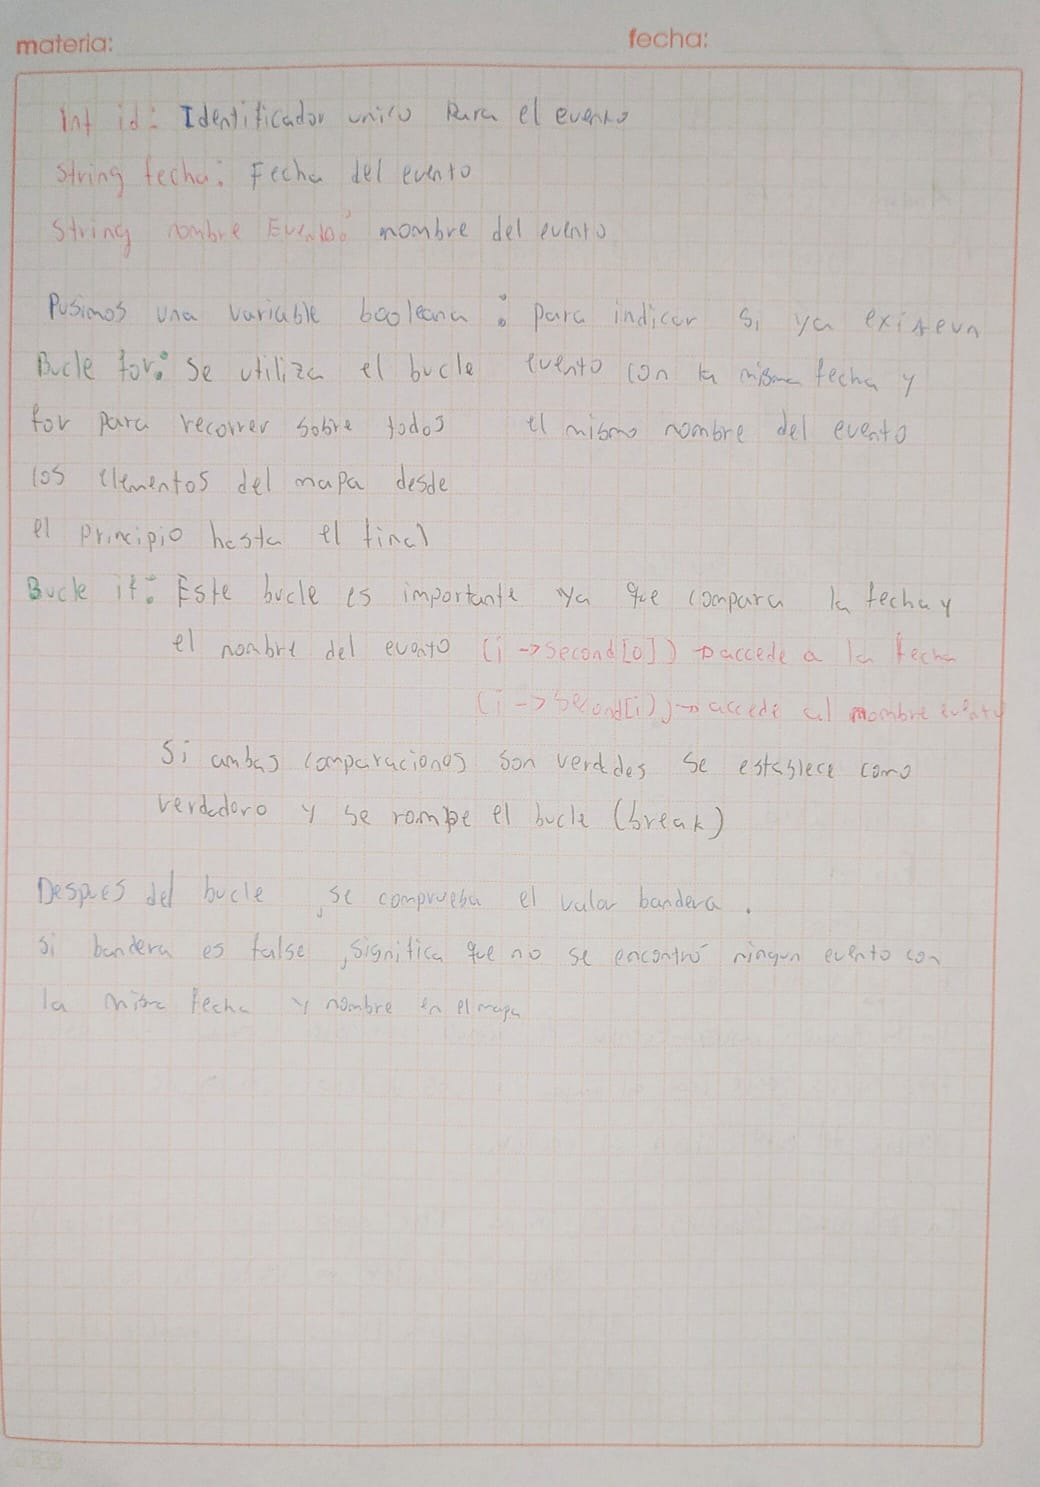 materia:
fecha:
Int id: Identificador unico para el evento
String fecha: Fecha del evento
String nombre Evento: nombre del evento
Pusimos una variable booleana: para indicar si ya existe un
evento con la misma fecha y
el mismo nombre del evento
Bucle for: Se utiliza el bucle
for para recorrer sobre todos
los elementos del mapa desde
el principio hasta el final
Bucle if: Este bucle es importante ya que compara la fecha y
el nombre del evento (i -> second[0]) → accede a la fecha
(i -> second[i]) → accede al nombre evento
Si ambas comparaciones son verddes se establece como
verdadoro y se rompe el bucle (break)
Despues del bucle, se comprueba el valor bandera.
si bandera es false, significa que no se encontró ningun evento con
la misma fecha y nombre en el mapa